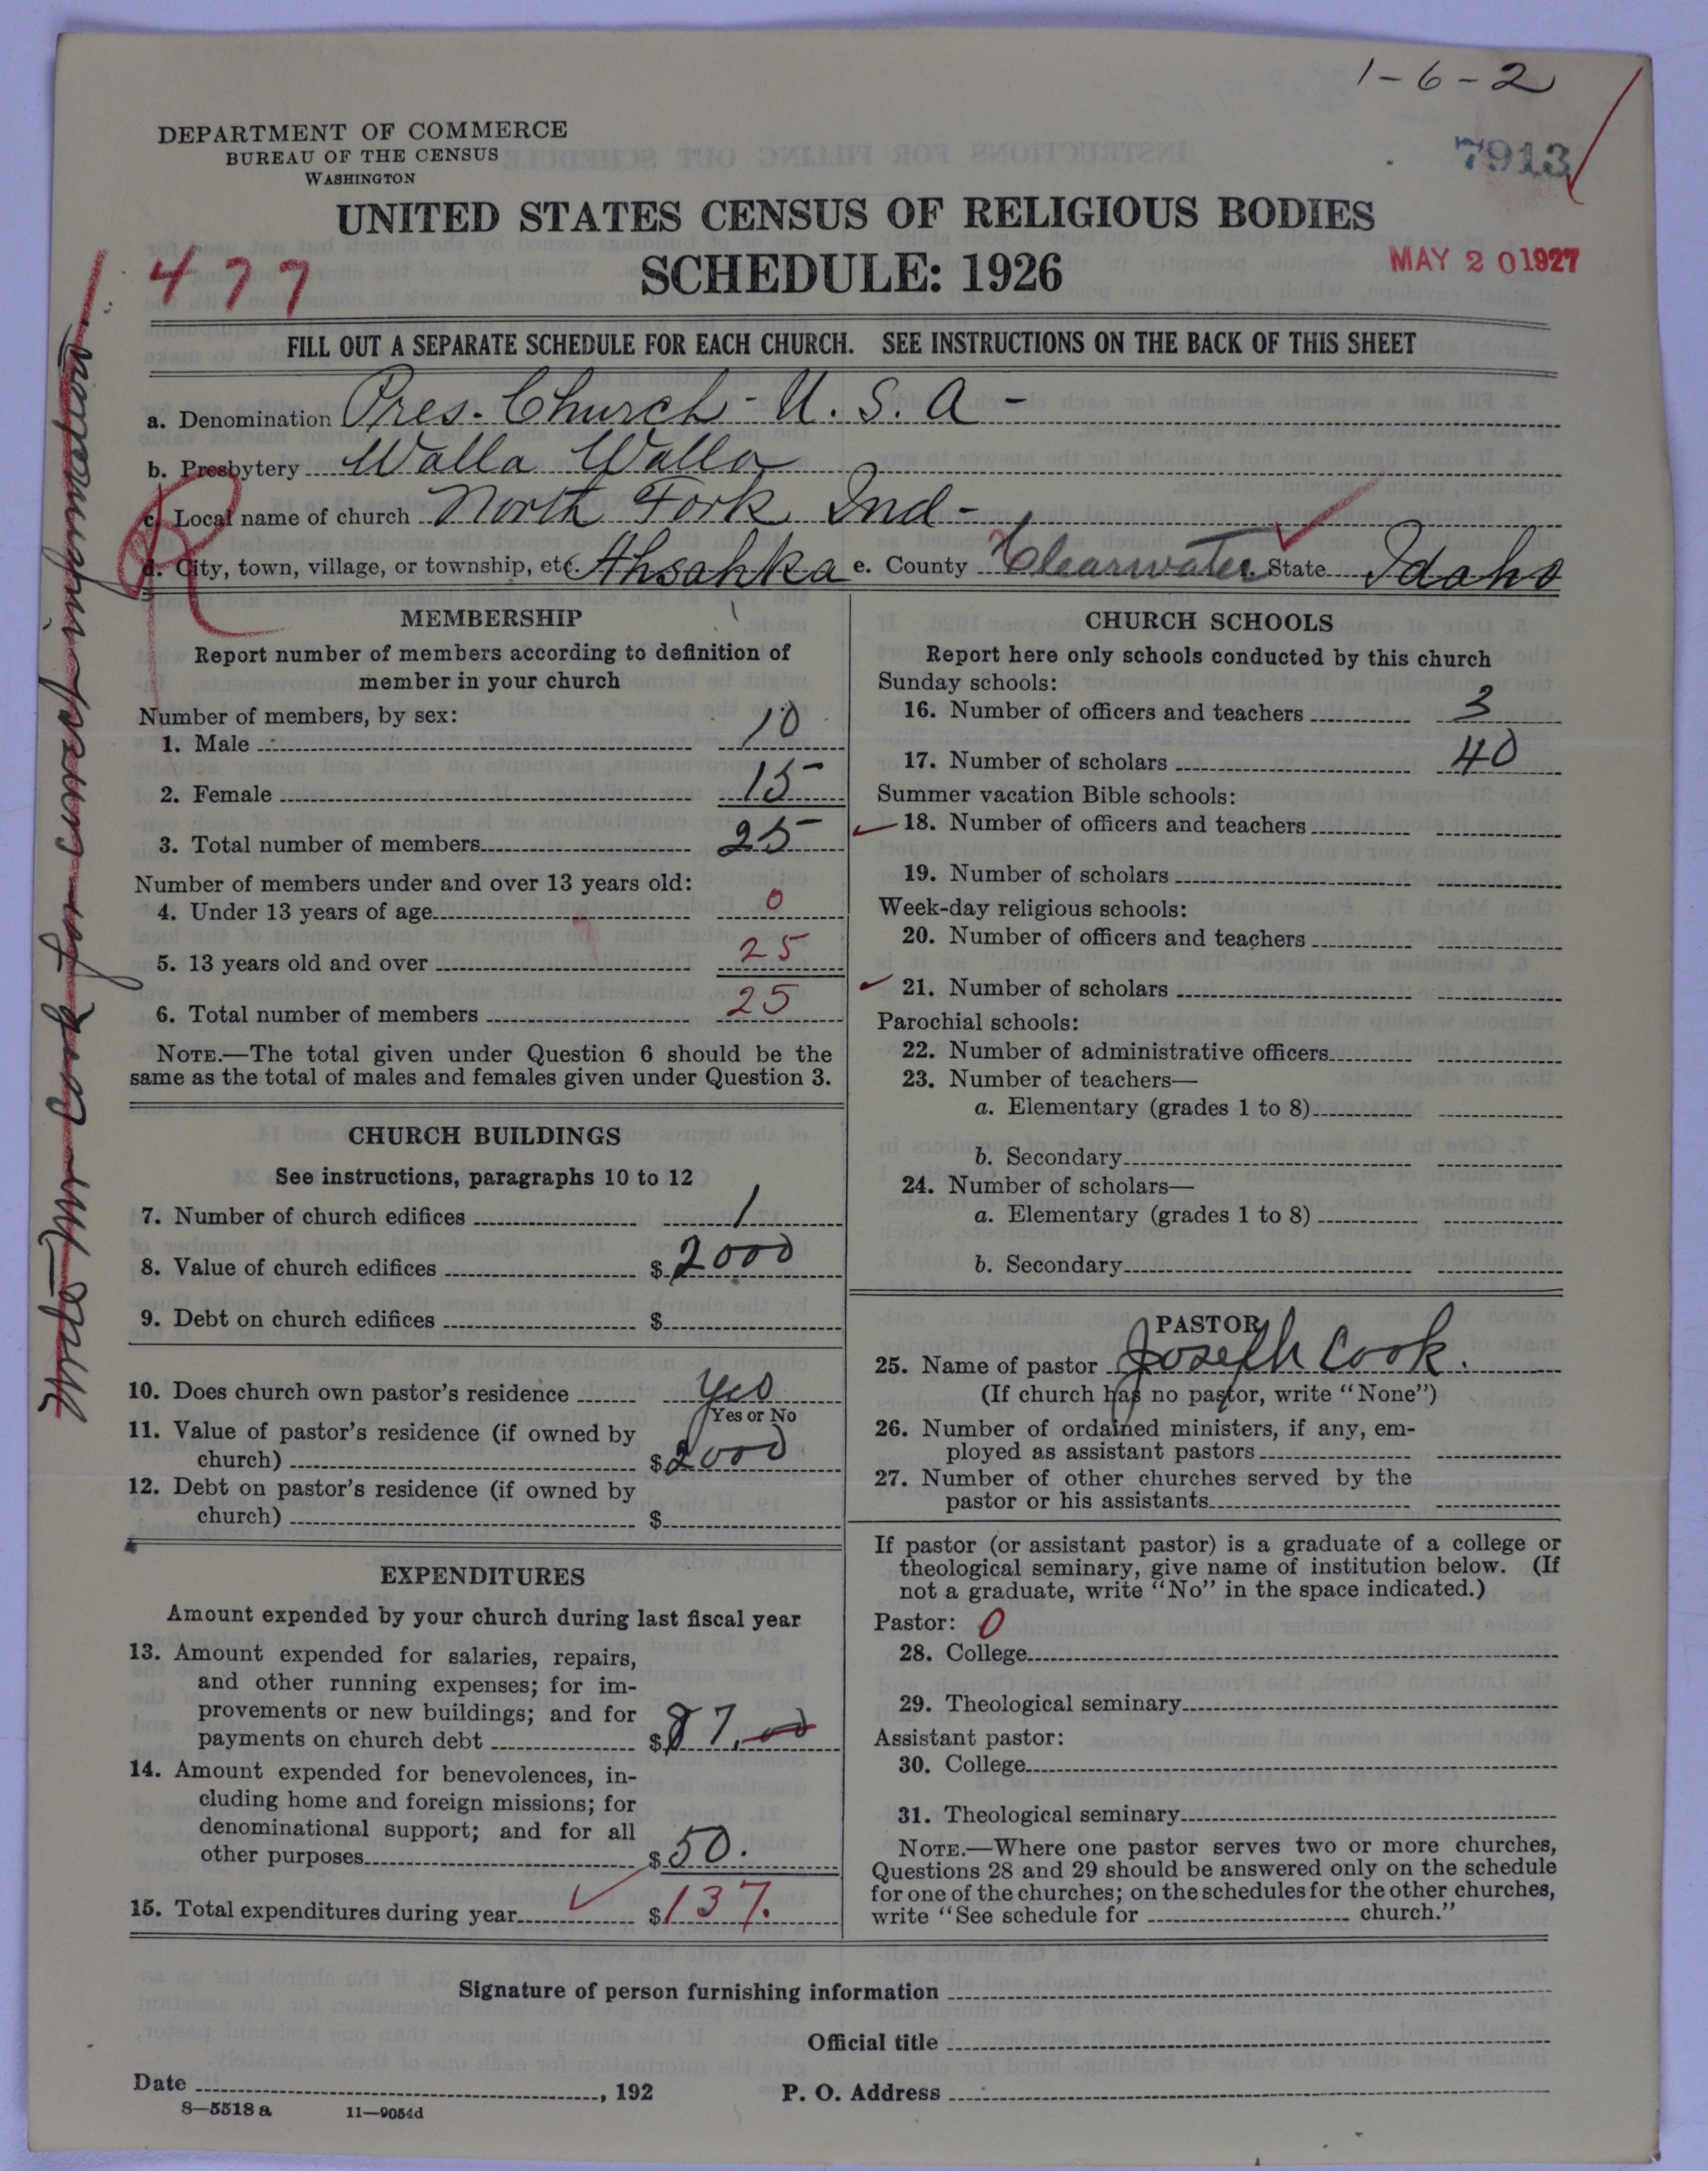 1-6-2
DEPARTMENT OF COMMERCE
BUREAU OF THE CENSUS
WASHINGTON
7913
UNITED STATES CENSUS OF RELIGIOUS BODIES
SCHEDULE: 1926
MAY 20 1927
477
FILL OUT A SEPARATE SCHEDULE FOR EACH CHURCH. SEE INSTRUCTIONS ON THE BACK OF THIS SHEET
a. Denomination Pres. Church - U. S. A -
b. Presbytery Walla Walla
c. Local name of church North Fork Ind -
d. City, town, village, or township, etc. Ahsahka e. County Clearwater State Idaho
Write Mr Cook for correct information
R
MEMBERSHIP
Report number of members according to definition of
member in your church
Number of members, by sex:
1. Male 10
2. Female 15
3. Total number of members 25
Number of members under and over 13 years old:
4. Under 13 years of age 0
5. 13 years old and over 25
6. Total number of members 25
NOTE.—The total given under Question 6 should be the
same as the total of males and females given under Question 3.
CHURCH BUILDINGS
See instructions, paragraphs 10 to 12
7. Number of church edifices 1
8. Value of church edifices $ 2000
9. Debt on church edifices $
10. Does church own pastor's residence Yes
Yes or No
11. Value of pastor's residence (if owned by
church) $ 2000
12. Debt on pastor's residence (if owned by
church) $
EXPENDITURES
Amount expended by your church during last fiscal year
13. Amount expended for salaries, repairs,
and other running expenses; for im-
provements or new buildings; and for
payments on church debt $ 87.00
14. Amount expended for benevolences, in-
cluding home and foreign missions; for
denominational support; and for all
other purposes $ 50.
15. Total expenditures during year $ 137.
CHURCH SCHOOLS
Report here only schools conducted by this church
Sunday schools:
16. Number of officers and teachers 3
17. Number of scholars 40
Summer vacation Bible schools:
18. Number of officers and teachers
19. Number of scholars
Week-day religious schools:
20. Number of officers and teachers
21. Number of scholars
Parochial schools:
22. Number of administrative officers
23. Number of teachers—
a. Elementary (grades 1 to 8)
b. Secondary
24. Number of scholars—
a. Elementary (grades 1 to 8)
b. Secondary
PASTOR
25. Name of pastor Joseph Cook.
(If church has no pastor, write "None")
26. Number of ordained ministers, if any, em-
ployed as assistant pastors
27. Number of other churches served by the
pastor or his assistants
If pastor (or assistant pastor) is a graduate of a college or
theological seminary, give name of institution below. (If
not a graduate, write "No" in the space indicated.)
Pastor: 0
28. College
29. Theological seminary
Assistant pastor:
30. College
31. Theological seminary
NOTE.—Where one pastor serves two or more churches,
Questions 28 and 29 should be answered only on the schedule
for one of the churches; on the schedules for the other churches,
write "See schedule for church."
Signature of person furnishing information
Official title
Date , 192 P. O. Address
8—5518 a 11—9054d